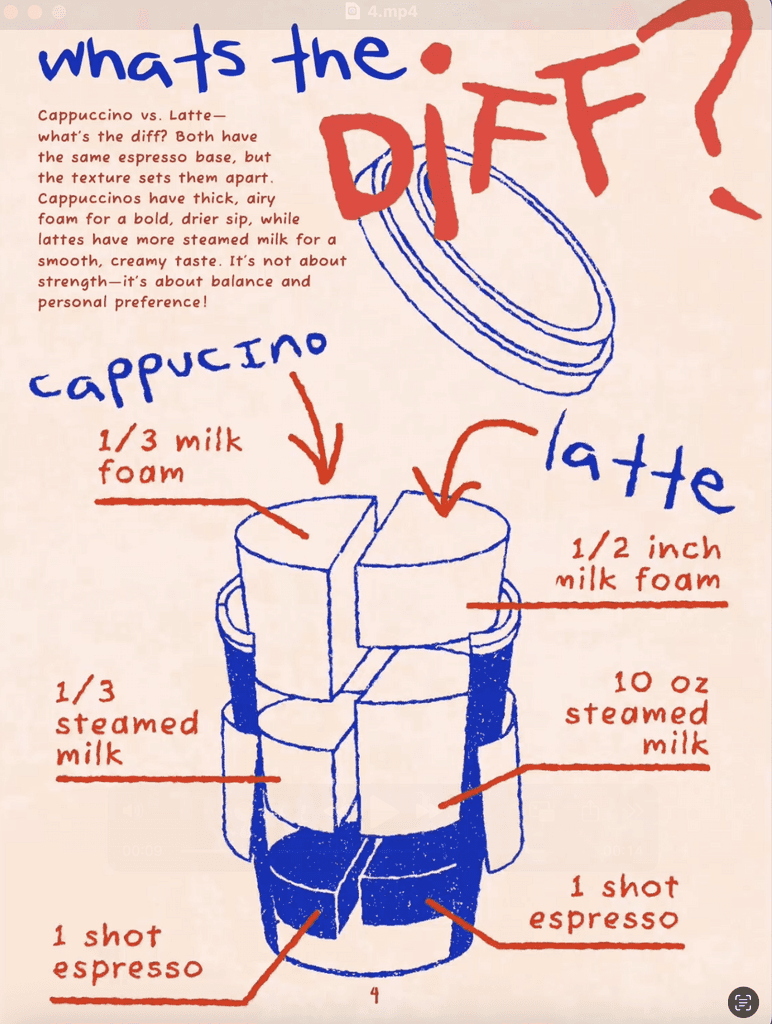 4.mp4
whats the
DIFF?
Cappuccino vs. Latte—
what's the diff? Both have
the same espresso base, but
the texture sets them apart.
Cappuccinos have thick, airy
foam for a bold, drier sip, while
lattes have more steamed milk for a
smooth, creamy taste. It's not about
strength—it's about balance and
personal preference!
cappucino
1/3 milk
foam
latte
1/2 inch
milk foam
1/3
steamed
milk
10 oz
steamed
milk
1 shot
espresso
1 shot
espresso
4